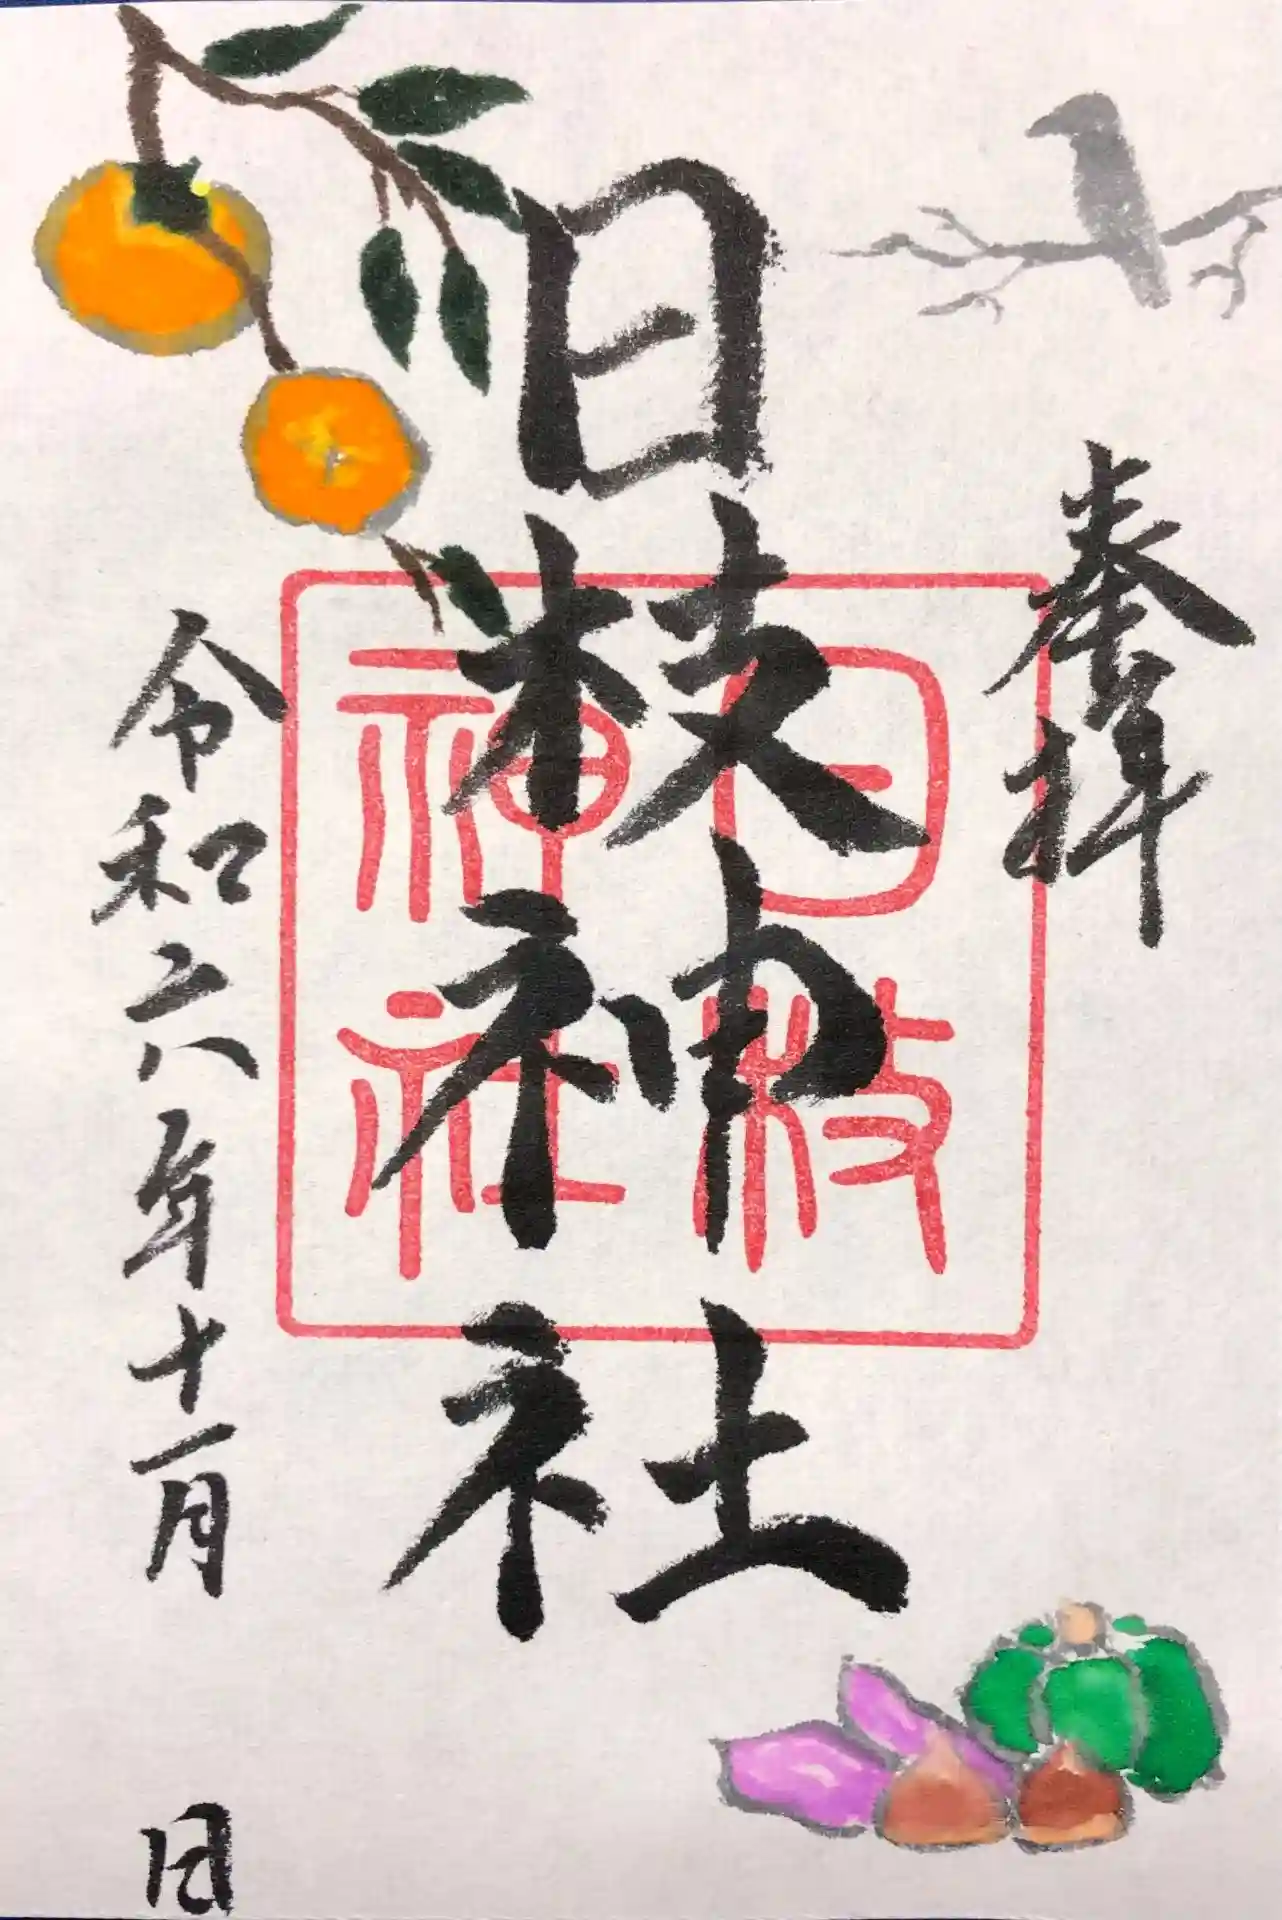 奉拝
日枝神社
日枝
神社
令和六年十一月 日